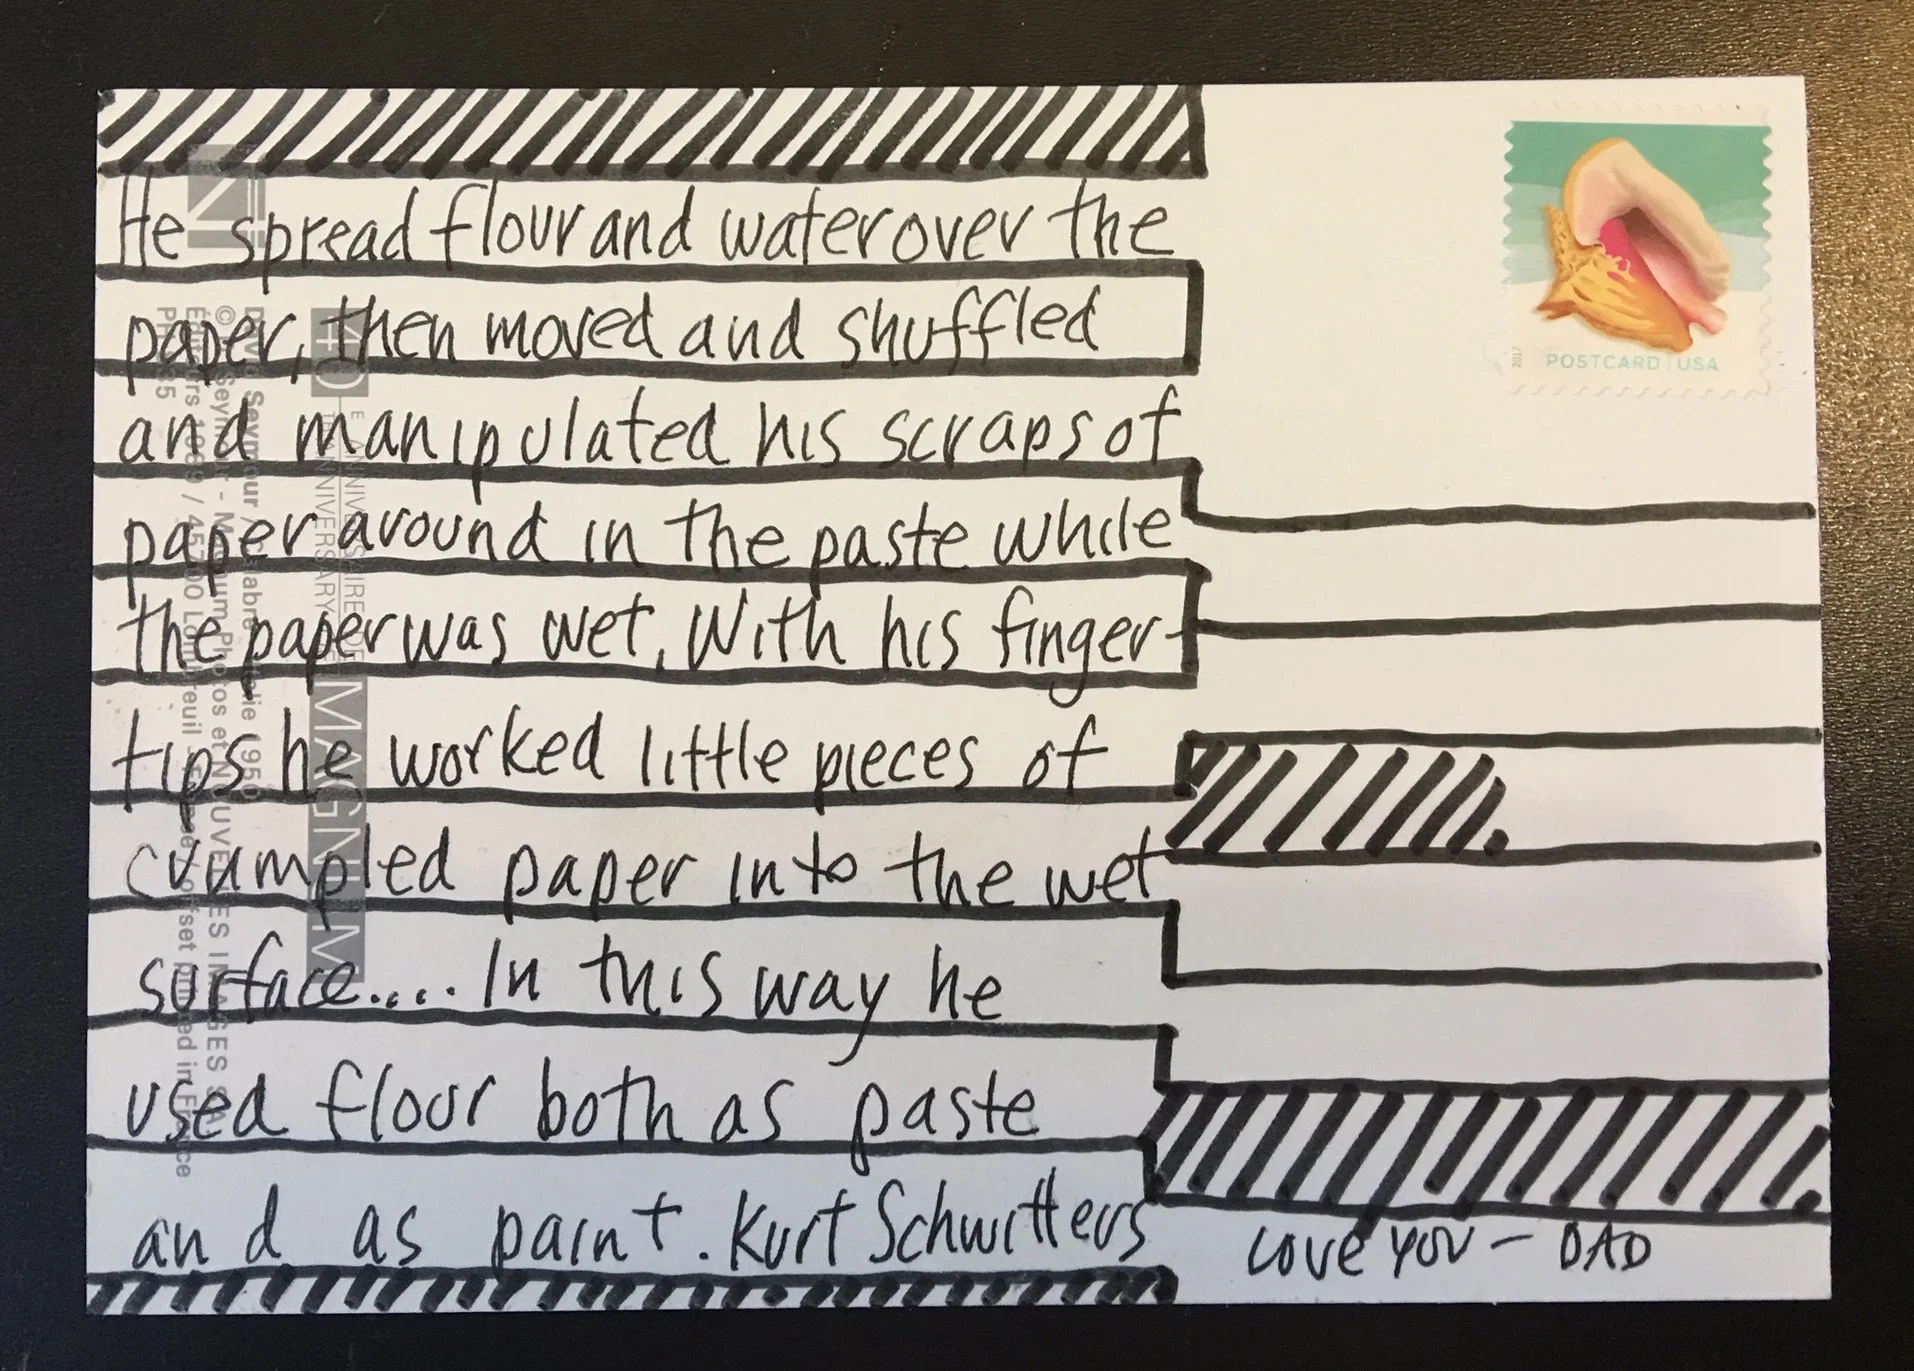 He spread flour and water over the
paper, then moved and shuffled
and manipulated his scraps of
paper around in the paste while
the paper was wet. With his finger-
tips he worked little pieces of
crumpled paper into the wet
surface.... In this way he
used flour both as paste
and as paint. Kurt Schwitters
LOVE YOU - DAD
2017
POSTCARD | USA
40
E ANNIVERSAIRE DE
TH ANNIVERSARY
MAGNUM
Seymour
1950
PH